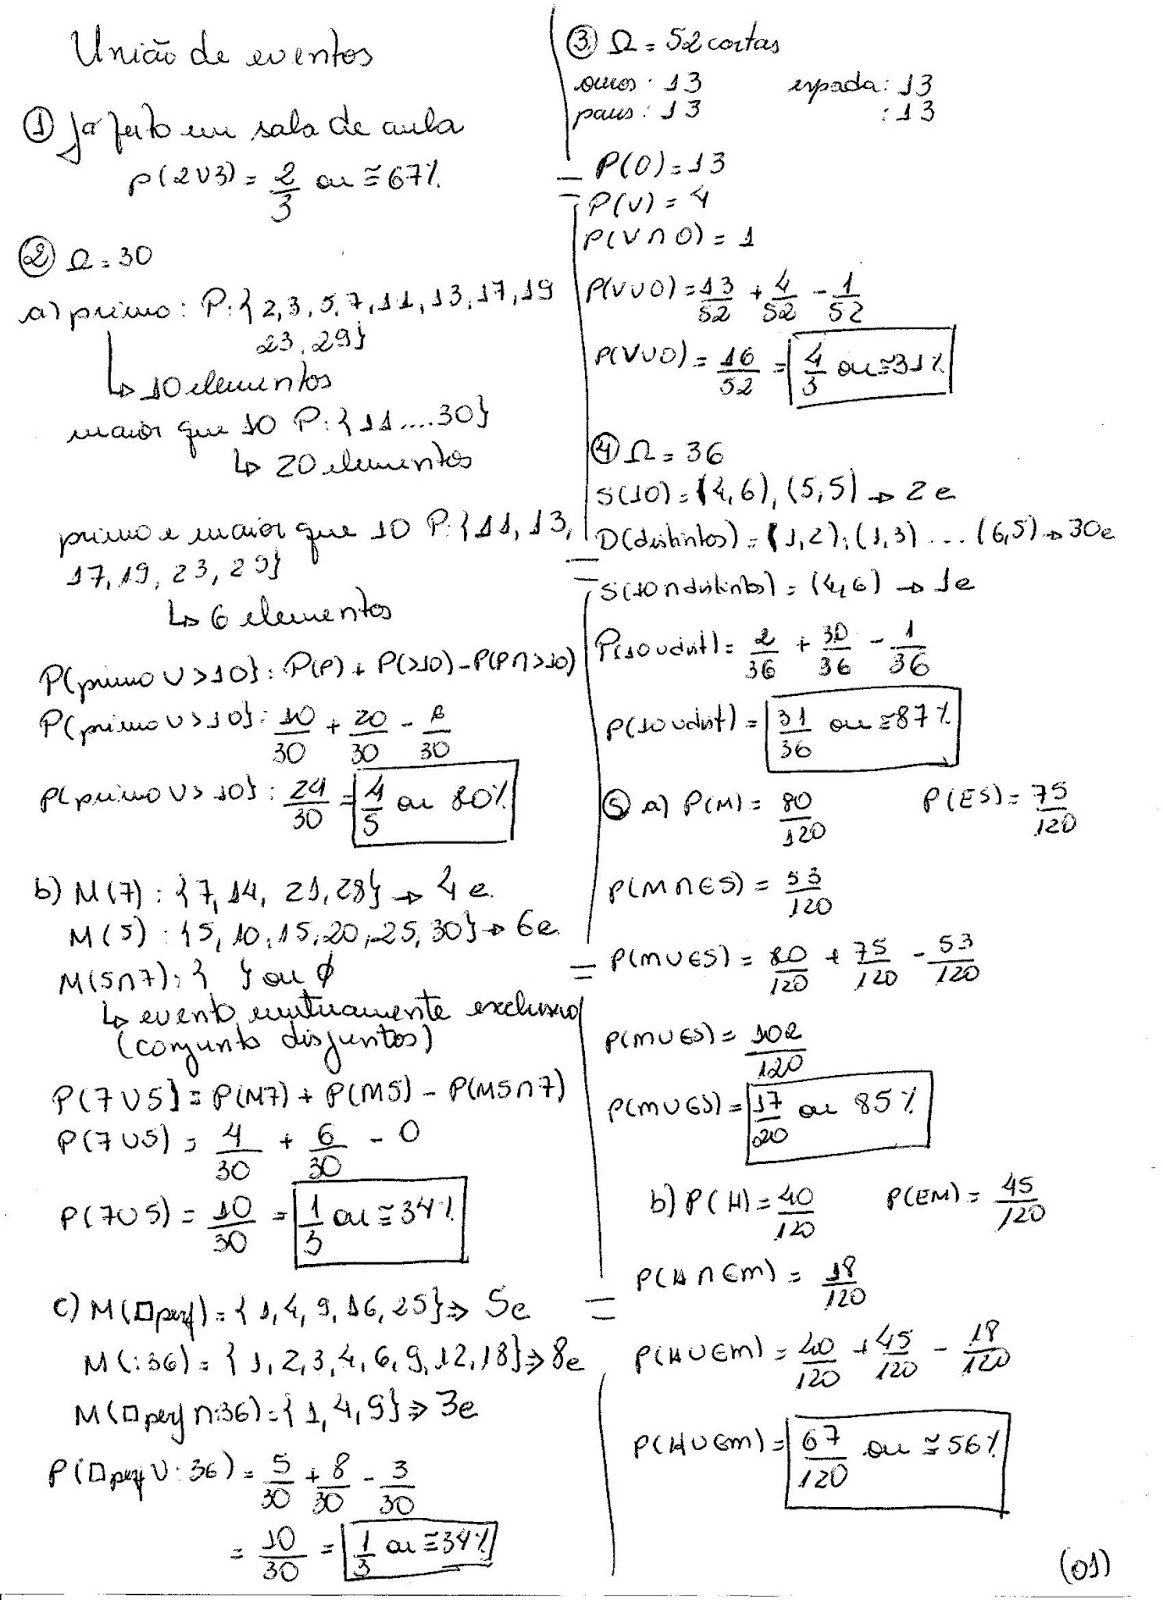 União de eventos
① Já feito em sala de aula
P(2∪3) = 2/3 ou ≅ 67%
② Ω = 30
a) primo : P:{2,3,5,7,11,13,17,19
23,29}
↳ 10 elementos
maior que 10 P:{11....30}
↳ 20 elementos
primo e maior que 10 P:{11,13,
17,19,23,29}
↳ 6 elementos
P(primo ∪ >10}: P(P) + P(>10) - P(P∩>10)
P(primo ∪ >10}: 10/30 + 20/30 - 6/30
P(primo ∪ >10} : 24/30 = 4/5 ou 80%
b) M(7) : {7,14, 21,28} → 4 e.
M(5) : {5,10,15,20,25,30} → 6e
M(5∩7) : { } ou ∅
↳ evento mutuamente exclusivo
(conjunto disjuntos)
P(7∪5) = P(M7) + P(M5) - P(M5∩7)
P(7∪5) = 4/30 + 6/30 - 0
P(7∪5) = 10/30 = 1/3 ou ≅ 34%
c) M(□perf) = {1,4,9,16,25} ⇒ 5e
M(:36) = {1,2,3,4,6,9,12,18} ⇒ 8e
M(□perf∩:36) = {1,4,9} ⇒ 3e
P(□perf∪:36) = 5/30 + 8/30 - 3/30
= 10/30 = 1/3 ou ≅ 34%
③ Ω = 52 cartas
ouros : 13 espada : 13
paus : 13 : 13
P(O) = 13
P(V) = 4
P(V∩O) = 1
P(V∪O) = 13/52 + 4/52 - 1/52
P(V∪O) = 16/52 = 4/3 ou ≅ 31%
④ Ω = 36
S(10) = (4,6), (5,5) → 2 e
D(distintos) = (1,2); (1,3) ... (6,5) → 30e
S(10∩distintos) = (4,6) → 1e
P(10∪dist) = 2/36 + 30/36 - 1/36
P(10∪dist) = 31/36 ou ≅ 87%
⑤ a) P(M) = 80/120 P(ES) = 75/120
P(M∩ES) = 53/120
P(M∪ES) = 80/120 + 75/120 - 53/120
P(M∪ES) = 102/120
P(M∪ES) = 17/20 ou 85%
b) P(H) = 40/120 P(EM) = 45/120
P(H∩EM) = 18/120
P(H∪EM) = 40/120 + 45/120 - 18/120
P(H∪EM) = 67/120 ou ≅ 56%
(01)